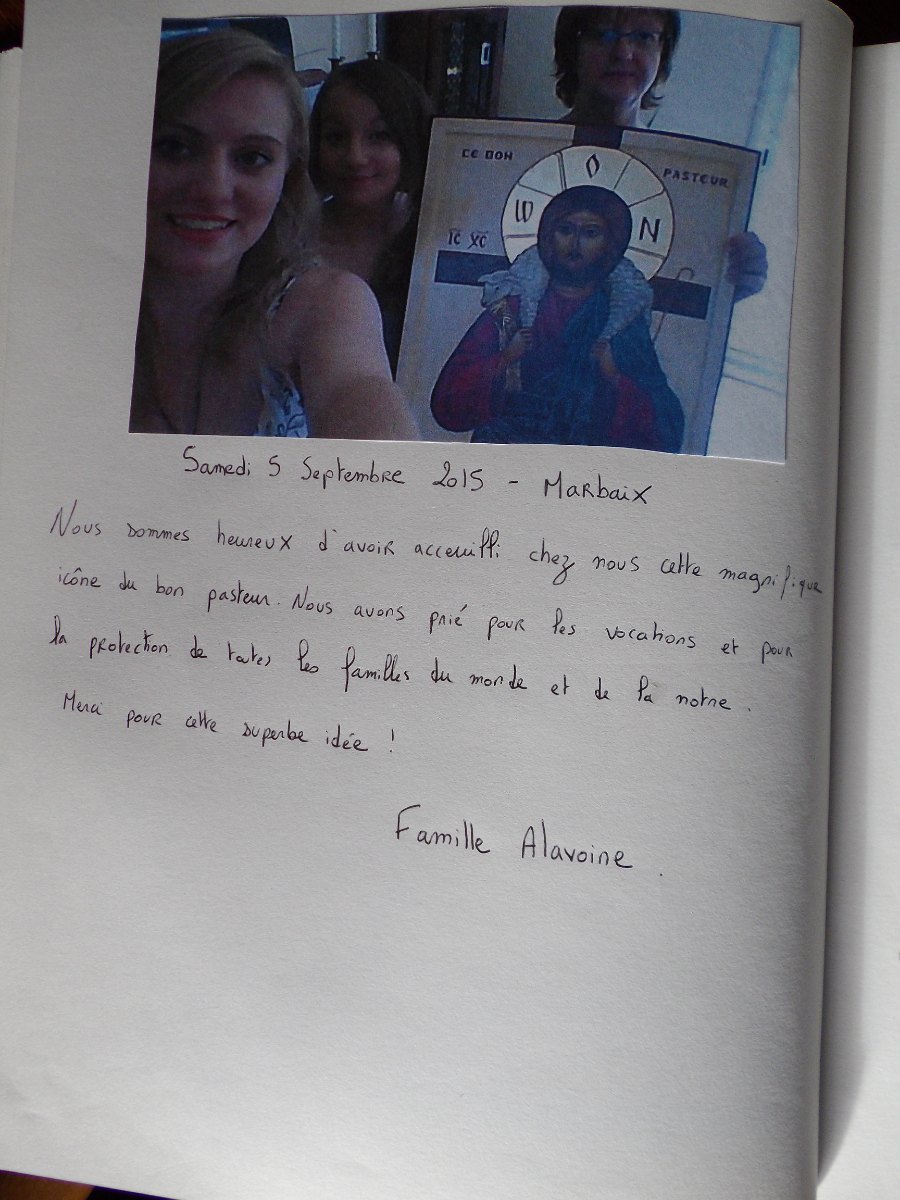 LE BON
PASTEUR
O
W
N
IC XC
Samedi 5 Septembre 2015 - Marbaix
Nous sommes heureux d'avoir acceuilli chez nous cette magnifique
icône du bon pasteur. Nous avons prié pour les vocations et pour
la protection de toutes les familles du monde et de la notre.
Merci pour cette superbe idée !
Famille Alavoine.